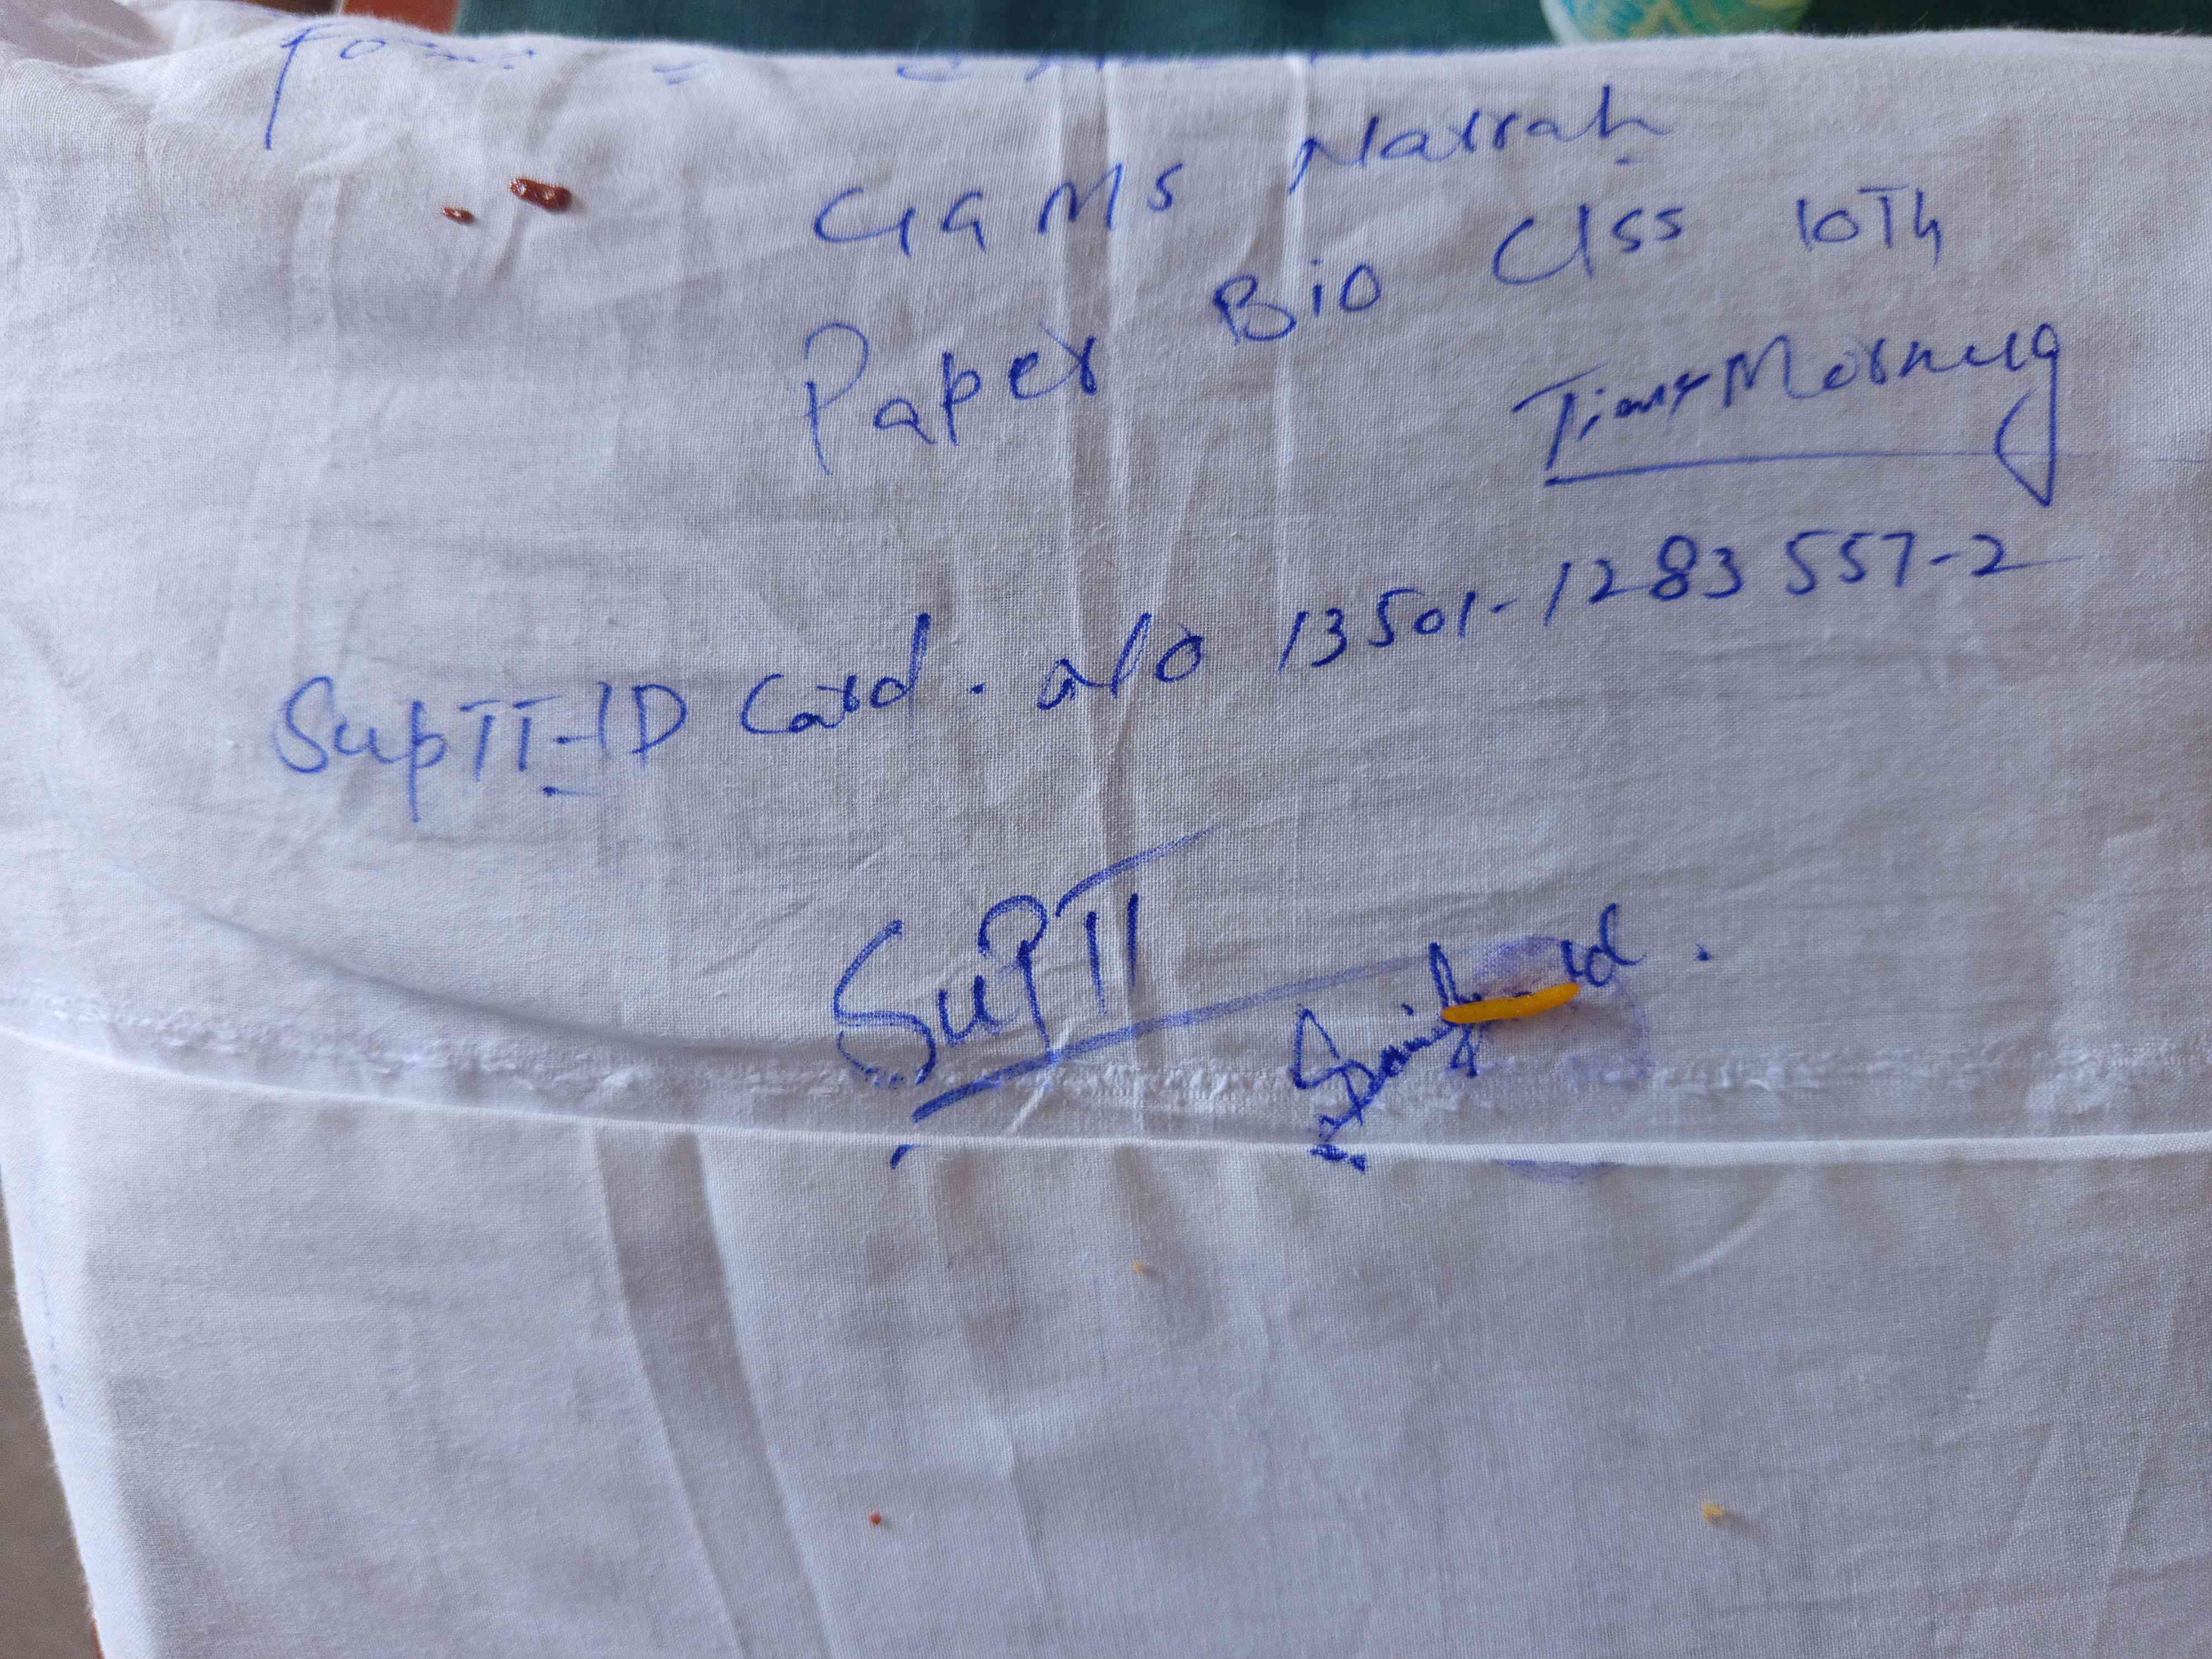 GGMS Narrah
Paper Bio Clss 10Th
Time Morning
SupTT-ID Card. No 13501-1283557-2
SupTT